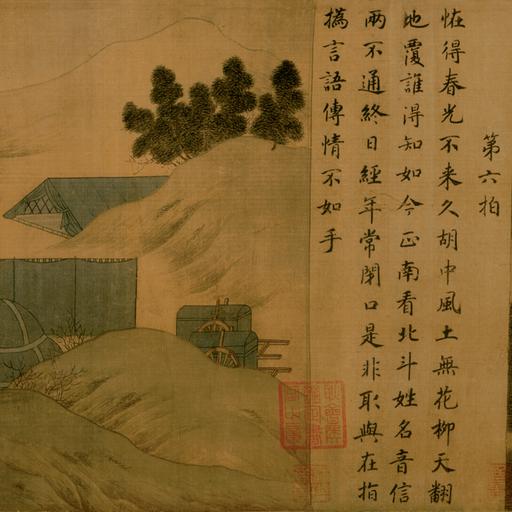 第六拍
恠得春光不来久胡中風土無花柳天翻
地覆誰得知如今正南看北斗姓名音信
兩不通終日經年常閉口是非取與在指
撝言語傳情不如手